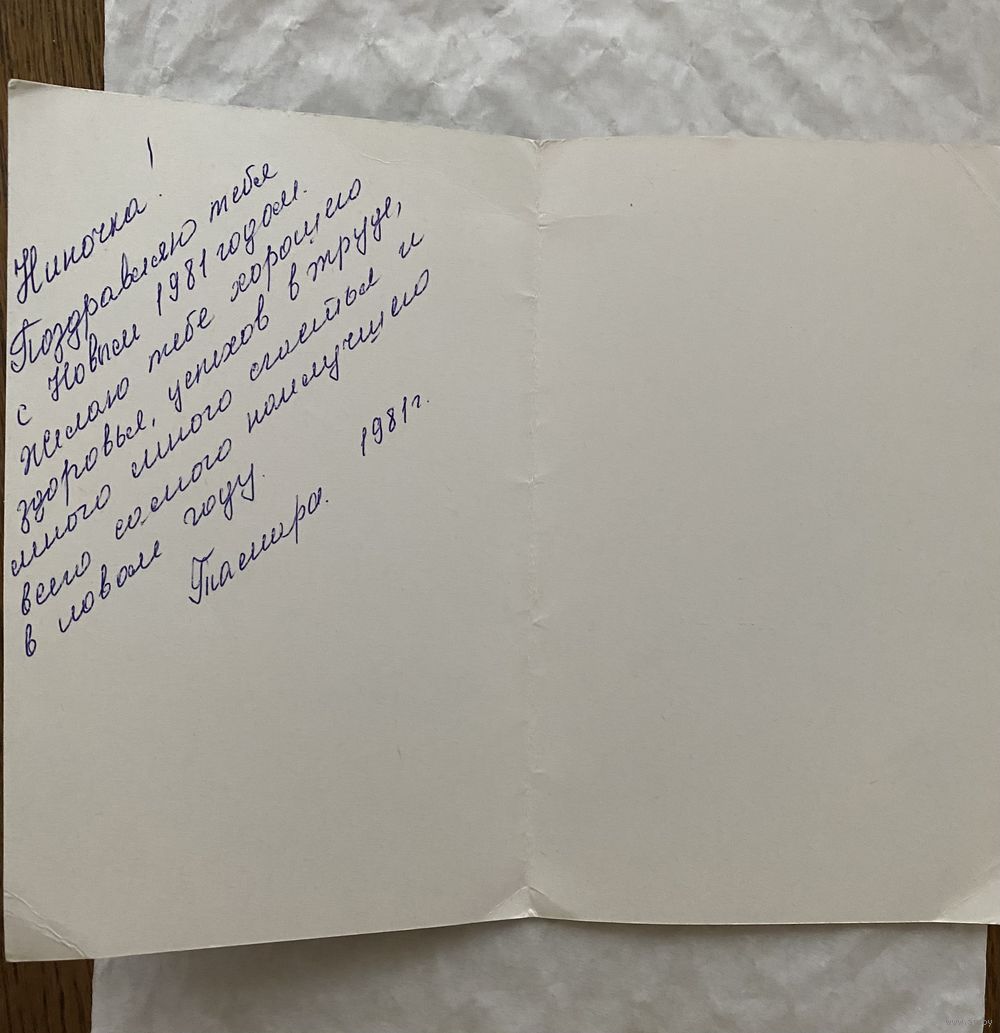 Ниночка!
Поздравляю тебя
с Новым 1981 годом.
Желаю тебе хорошего
здоровья, успехов в труде,
много много счастья и
всего самого наилучшего
в новом году.
1981 г.
Тамара.